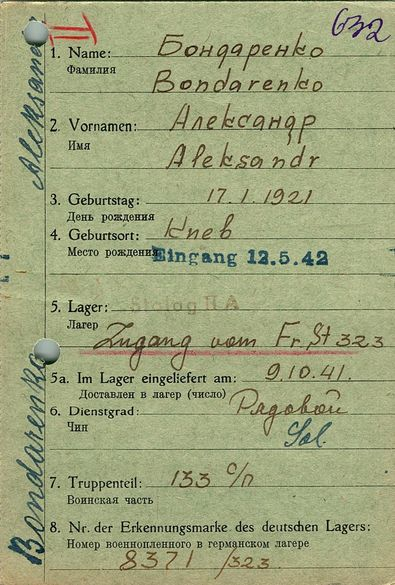 632
II
1. Name: Бондаренко
Фамилия
Bondarenko
2. Vornamen: Александр
Имя
Aleksandr
3. Geburtstag: 17.1.1921
День рождения
4. Geburtsort: Киев
Место рождения
Eingang 12.5.42
5. Lager: Stalag II A
Лагер
Zugang vom Fr. St 323
5a. Im Lager eingeliefert am: 9.10.41.
Доставлен в лагер (число)
6. Dienstgrad: Рядовой
Чин
Sol.
7. Truppenteil: 133 с/п
Воинская часть
8. Nr. der Erkennungsmarke des deutschen Lagers:
Номер военнопленного в германском лагере
8371 /323
Bondarenko Aleksand